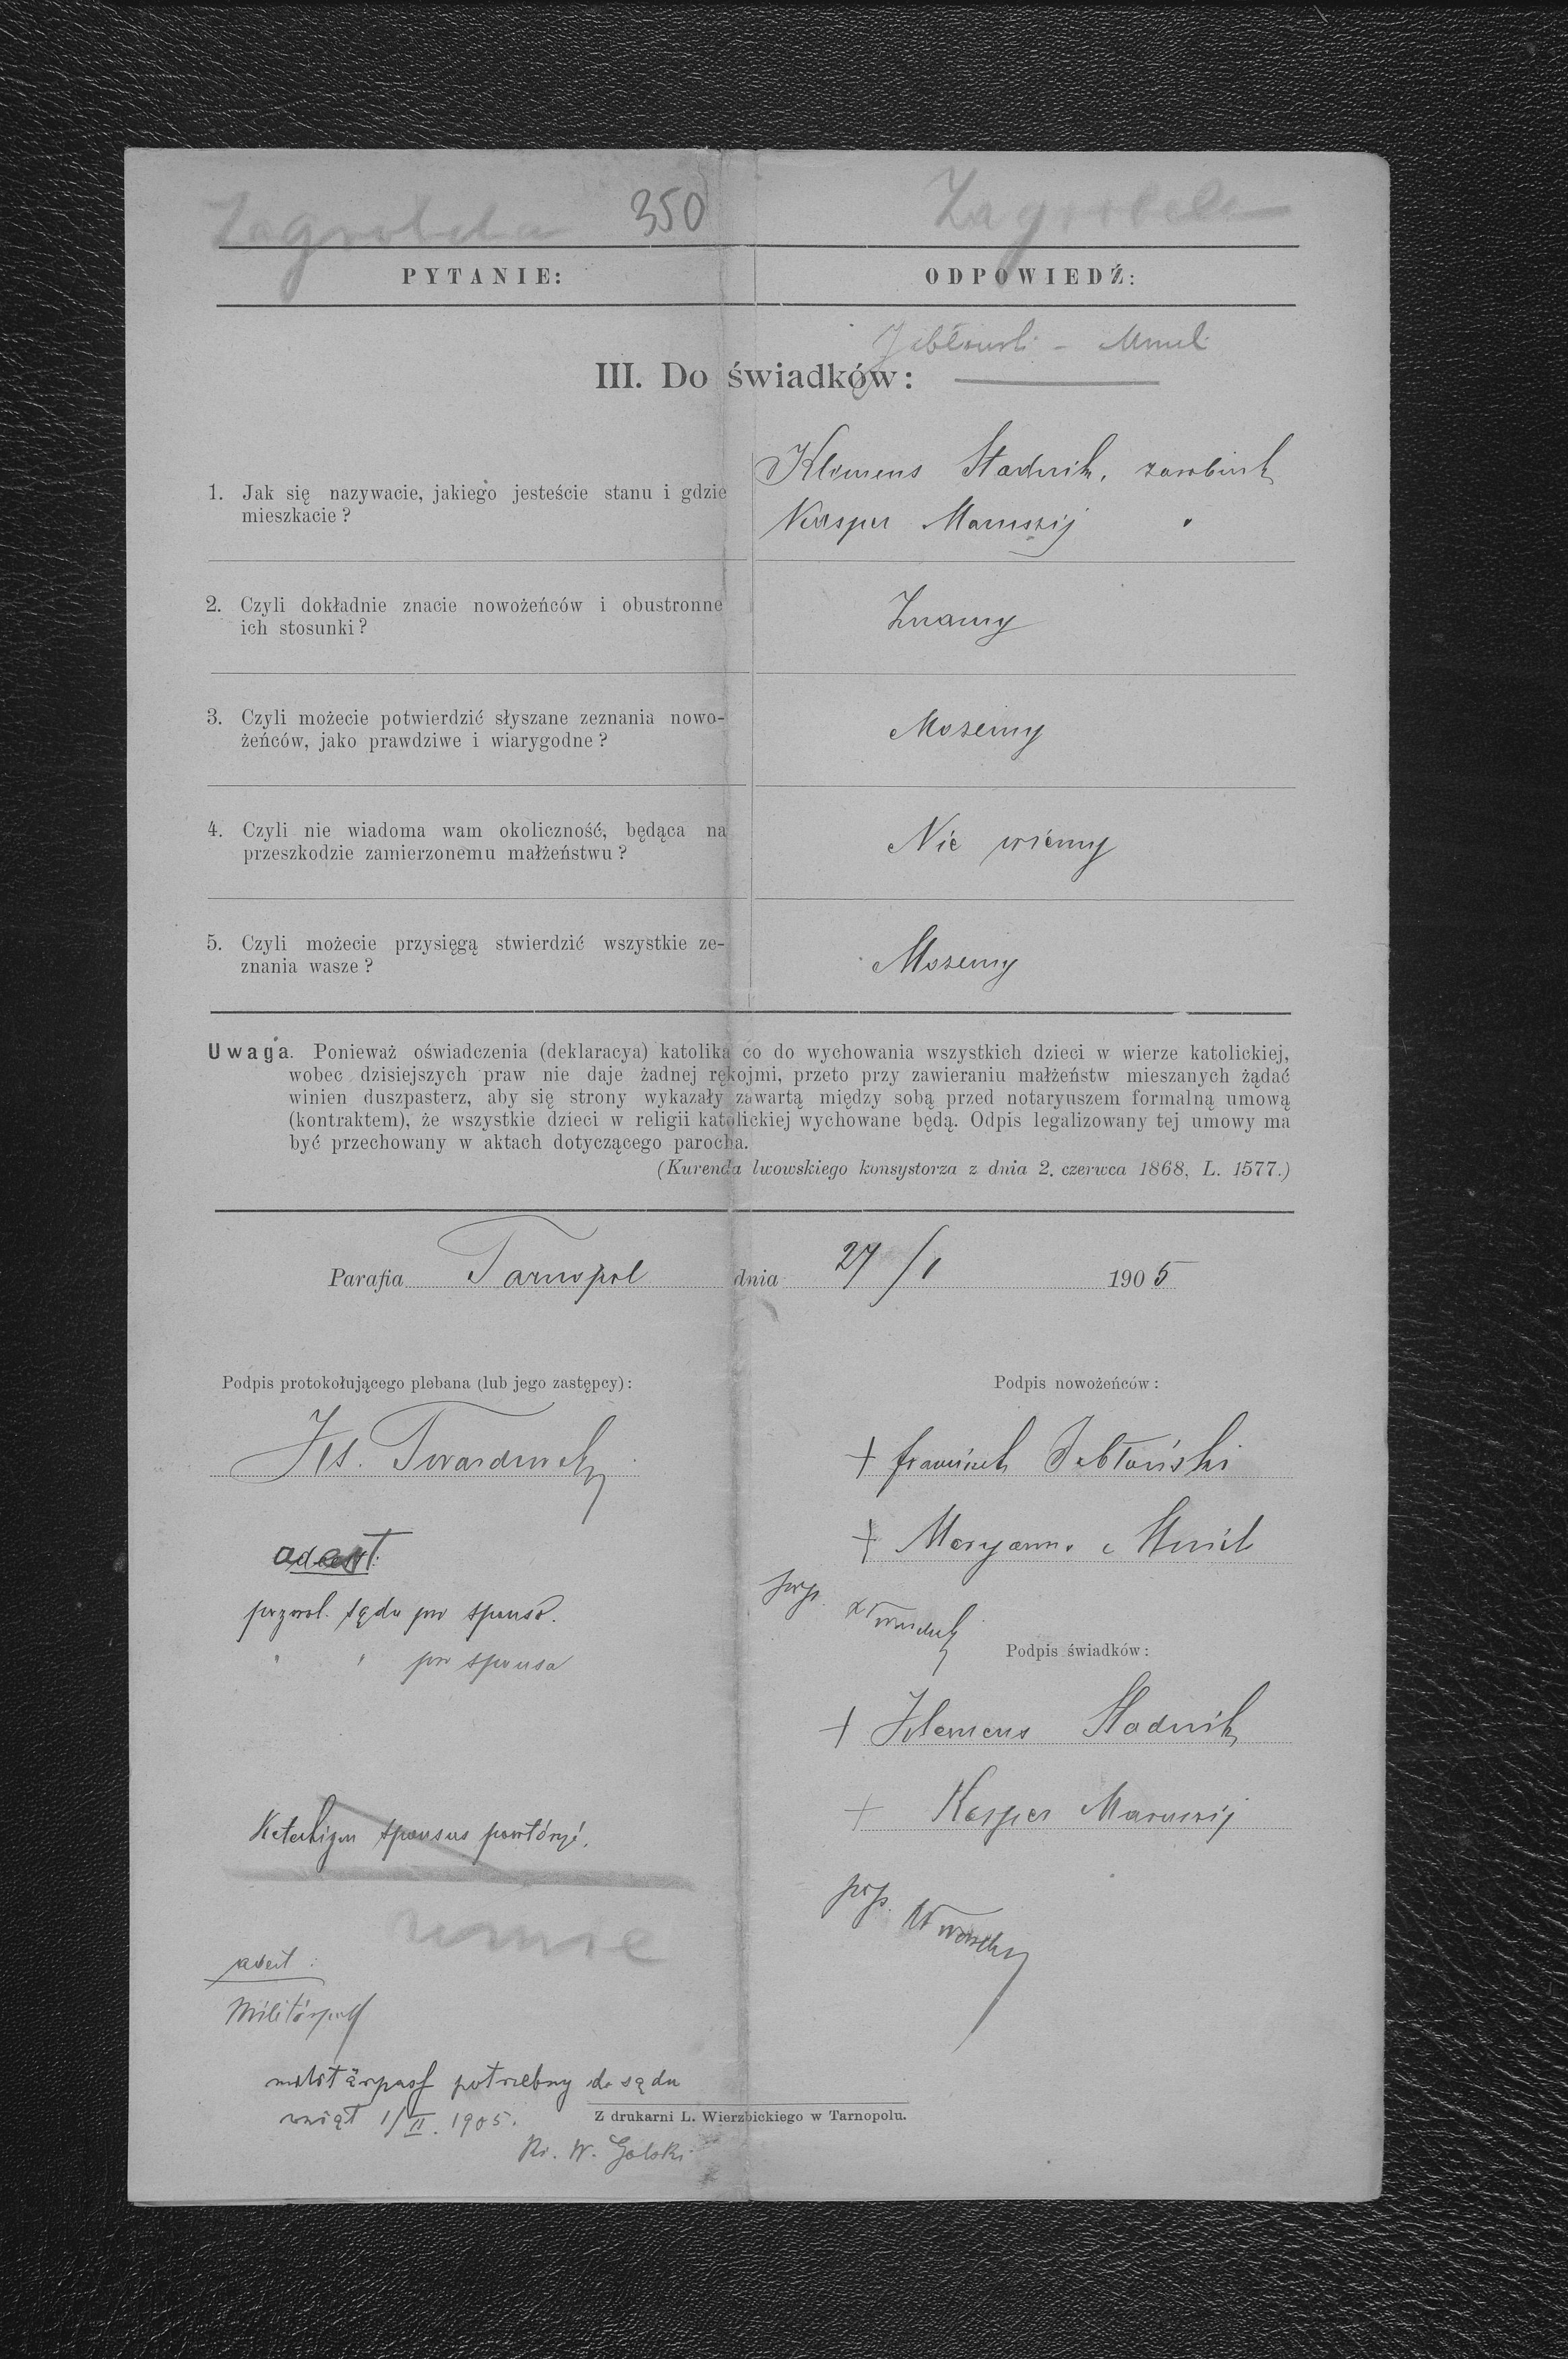 350
PYTANIE:
ODPOWIEDŹ:
III. Do świadków:
1. Jak się nazywacie, jakiego jesteście stanu i gdzie
mieszkacie?
Klemens Stadnik, zarobnik
Kasper Maruszij "
2. Czyli dokładnie znacie nowożeńców i obustronne
ich stosunki?
Znamy
3. Czyli możecie potwierdzić słyszane zeznania nowo-
żeńców, jako prawdziwe i wiarygodne?
Mozemy
4. Czyli nie wiadoma wam okoliczność, będąca na
przeszkodzie zamierzonemu małżeństwu?
Nie wiemy
5. Czyli możecie przysięgą stwierdzić wszystkie ze-
znania wasze?
Mozemy
Uwaga. Ponieważ oświadczenia (deklaracya) katolika co do wychowania wszystkich dzieci w wierze katolickiej,
wobec dzisiejszych praw nie daje żadnej rękojmi, przeto przy zawieraniu małżeństw mieszanych żądać
winien duszpasterz, aby się strony wykazały zawartą między sobą przed notaryuszem formalną umową
(kontraktem), że wszystkie dzieci w religii katolickiej wychowane będą. Odpis legalizowany tej umowy ma
być przechowany w aktach dotyczącego parocha.
(Kurenda lwowskiego konsystorza z dnia 2. czerwca 1868, L. 1577.)
Parafia Tarnopol dnia 27/1 1905
Podpis protokołującego plebana (lub jego zastępcy):
Podpis nowożeńców:
+ Jabłoński
+ Maryanna
adest:
pozwol. sądu pro sponso.
" " pro sponsa
Podpis świadków:
+ Klemens Stadnik
+ Kasper Maruszij
Katechizm sponsus powtórzyć.
umie
adest:
Militärpass
militärpass potrzebny do sądu
wziął 1/II. 1905.
Z drukarni L. Wierzbickiego w Tarnopolu.